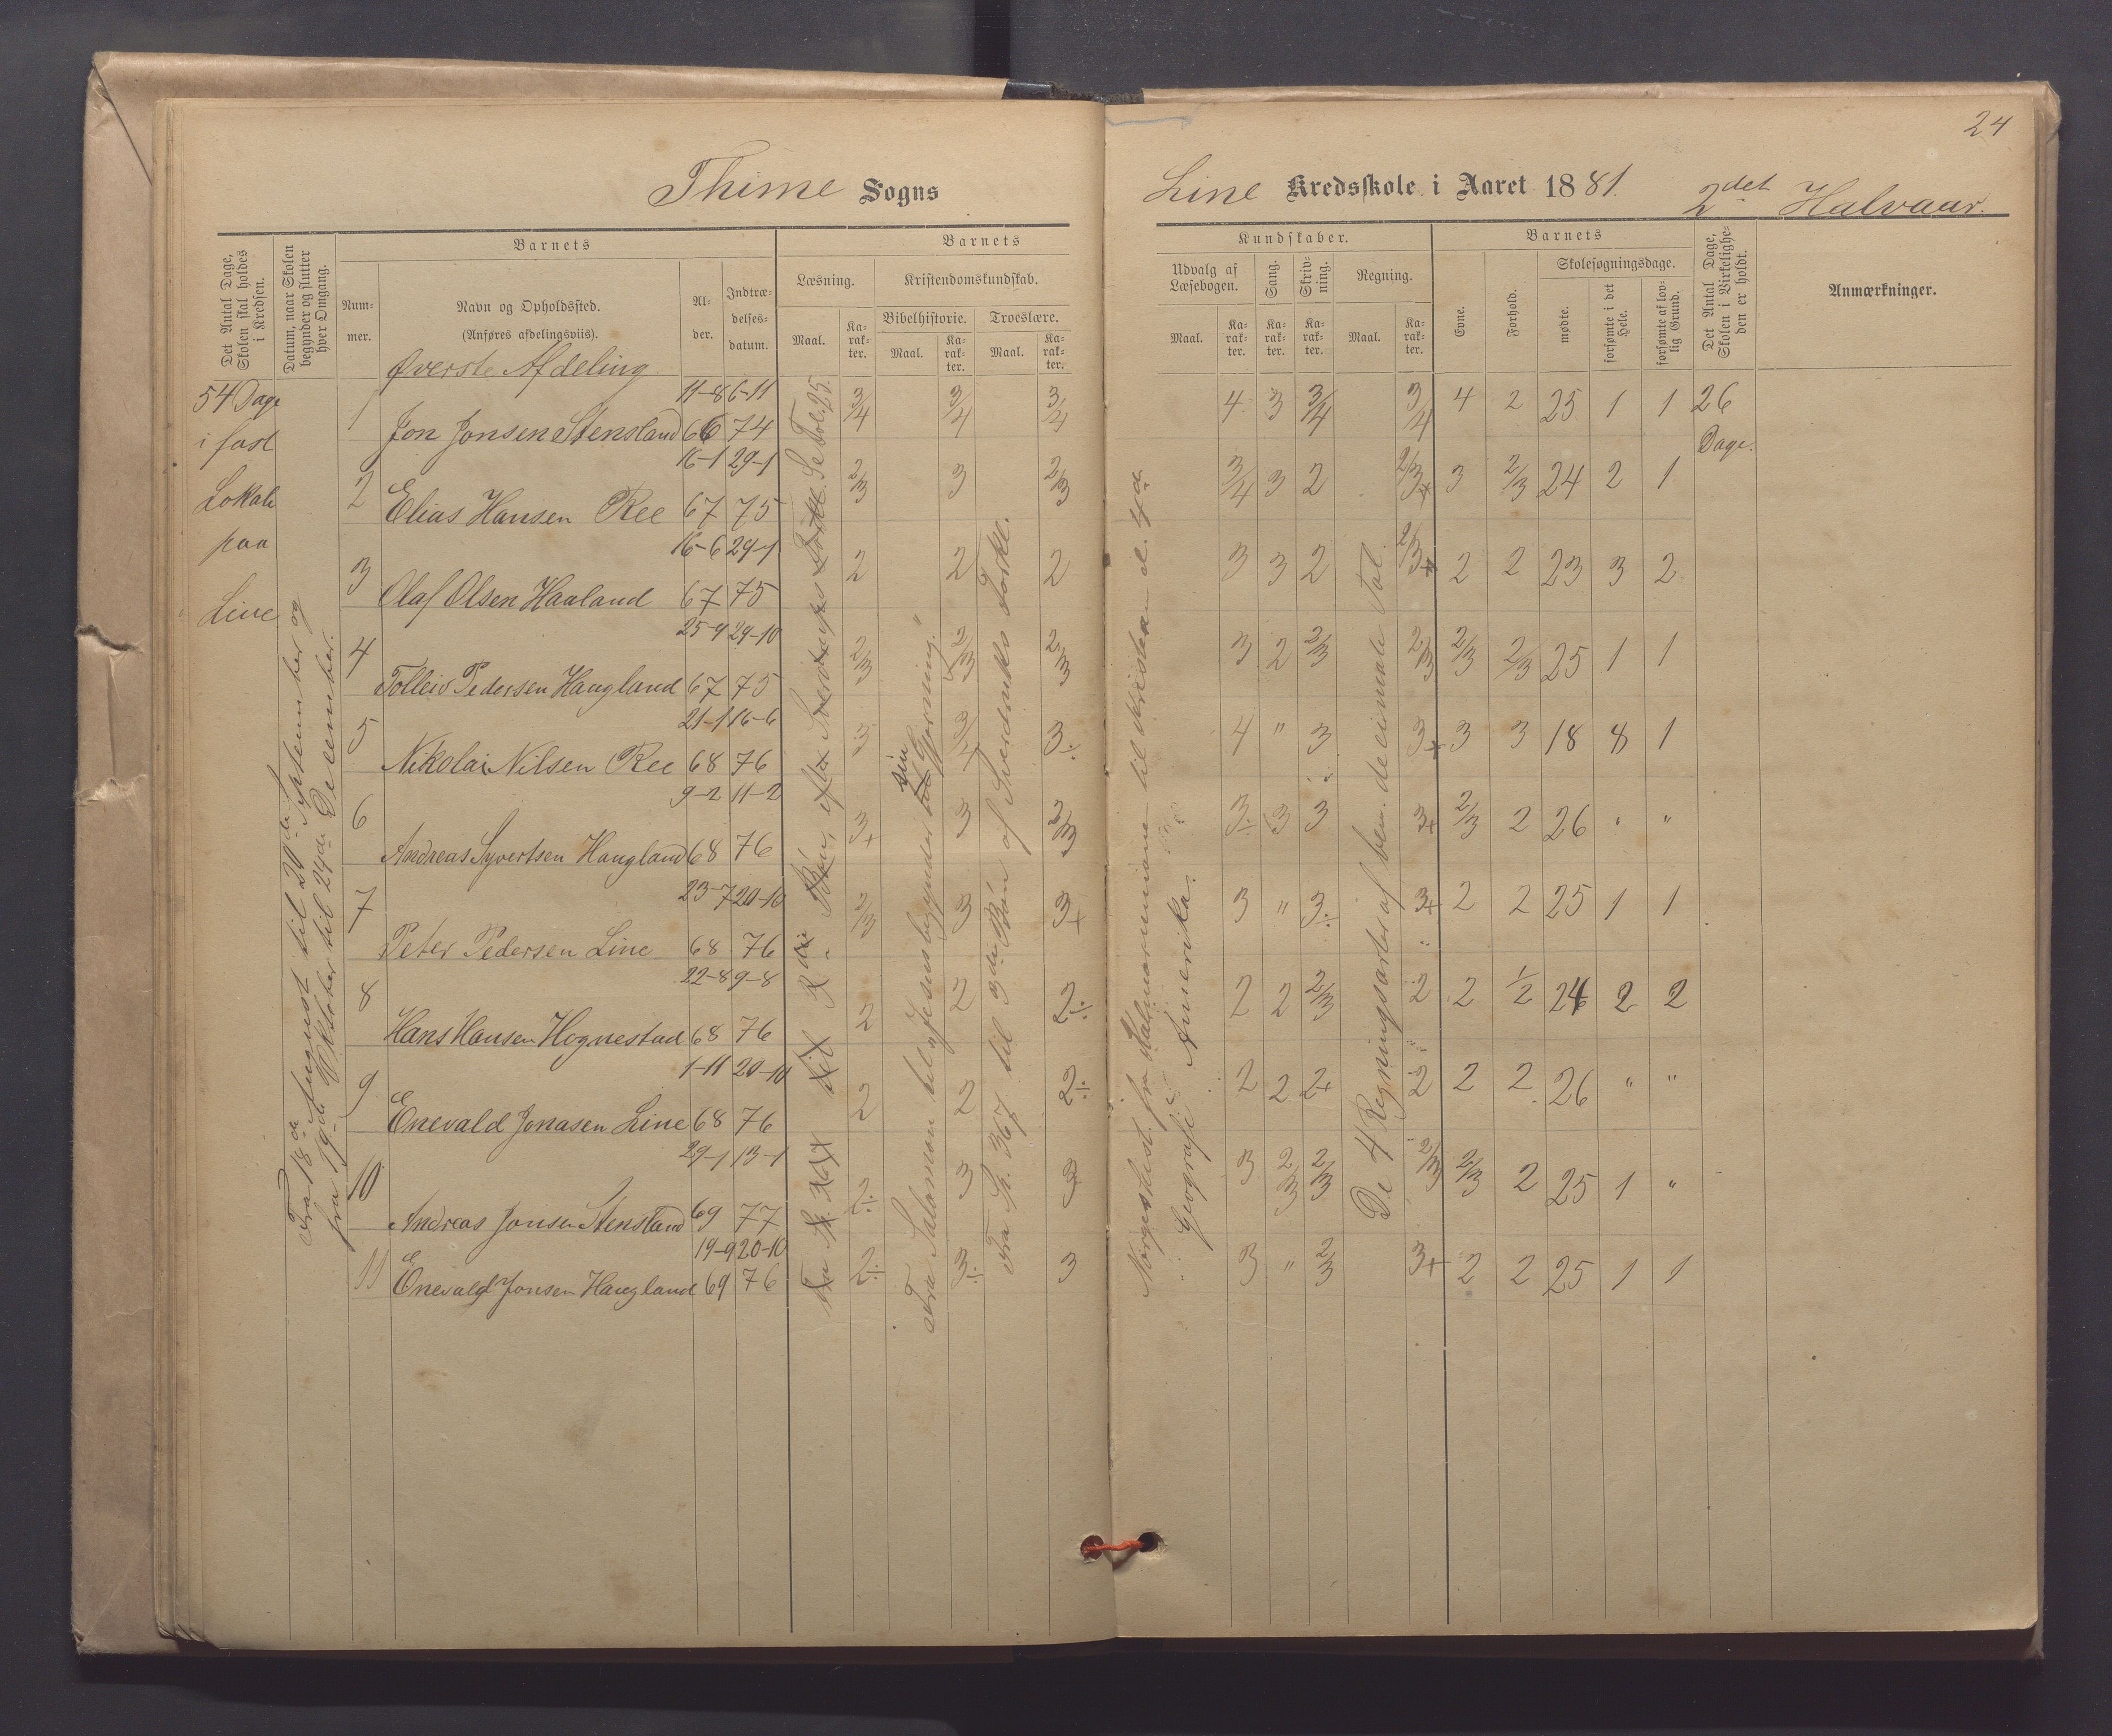 24
Thime Sogns
Line Kredsskole i Aaret 1881. 2det Halvaar.
Det Antal Dage, Skolen skal holdes i Kredsen.
Datum, naar Skolen begynder og slutter hver Omgang.
Barnets
Nummer.
Navn og Opholdssted.
(Anføres afdelingsviis).
Alder.
Indtrædelsesdatum.
Barnets
Læsning.
Maal.
Karakter.
Kristendomskundskab.
Bibelhistorie.
Maal.
Karakter.
Troeslære.
Maal.
Karakter.
Kundskaber.
Udvalg af Læsebogen.
Maal.
Karakter.
Sang.
Karakter.
Skrivning.
Karakter.
Regning.
Maal.
Karakter.
Barnets
Evne.
Forhold.
Skolesøgningsdage.
mødte.
forsømte i det Hele.
forsømte af lovlig Grund.
Det Antal Dage, Skolen i Virkeligheden er holdt.
Anmærkninger.
54 Dage
i fast
Lokale
paa
Line
Fra 18de August til 20de September og
fra 19de Oktober til 24de December.
Øverste Afdeling
1 Jon Jonsen Stensland 11-8 66 6-11 74 3/4 3/4 3/4 4 3 3/4 3/4 4 2 25 1 1 26 Dage.
2 Elias Hansen Ree 16-1 67 29-1 75 2/3 3 2/3 3/4 3 2 2/3+ 3 2/3 24 2 1
3 Olaf Olsen Haaland 16-6 67 29-1 75 2 2 2 3 3 2 2/3+ 2 2 23 3 2
4 Tolleiv Pedersen Haugland 25-9 67 29-10 75 2/3 2/3 2/3 3 2 2/3 2/3 2/3 2/3 25 1 1
5 Nikolai Nilsen Ree 21-1 68 16-6 76 3 3/4 3÷ 4 " 3 3+ 3 3 18 8 1
6 Andreas Syvertsen Haugland 9-2 68 11-2 76 3+ 3 2/3 3÷ 3 3 3+ 2/3 2 26 " "
7 Peter Pedersen Line 23-7 68 20-10 76 2/3 3 3+ 3 " 3÷ 3+ 2 2 25 1 1
8 Hans Hansen Hognestad 22-8 68 9-8 76 2 2 2÷ 2 2 2/3 2 2 1/2 24 2 2
9 Enevald Jonasen Line 1-11 68 20-10 76 2 2 2÷ 2 2 2+ 2 2 2 26 " "
10 Andreas Jonsen Stensland 29-1 69 13-1 77 2÷ 3 3 3 2/3 2/3 2/3 2/3 2 25 1 "
11 Enevald Jonsen Haugland 19-9 69 20-10 76 2÷ 3÷ 3 3 " 2/3 3+ 2 2 25 1 1
Fra Salomon til "Jesus begynder sin Gjerning."
Fra Sp. 367 til 3die Bøn af Sverdrups Forkl.
Norgeshist. fra Kalmarunionen til Kristian d. 4de
Geografi: Amerika.
De 4 Regningsarter af ben. decimale Tal.